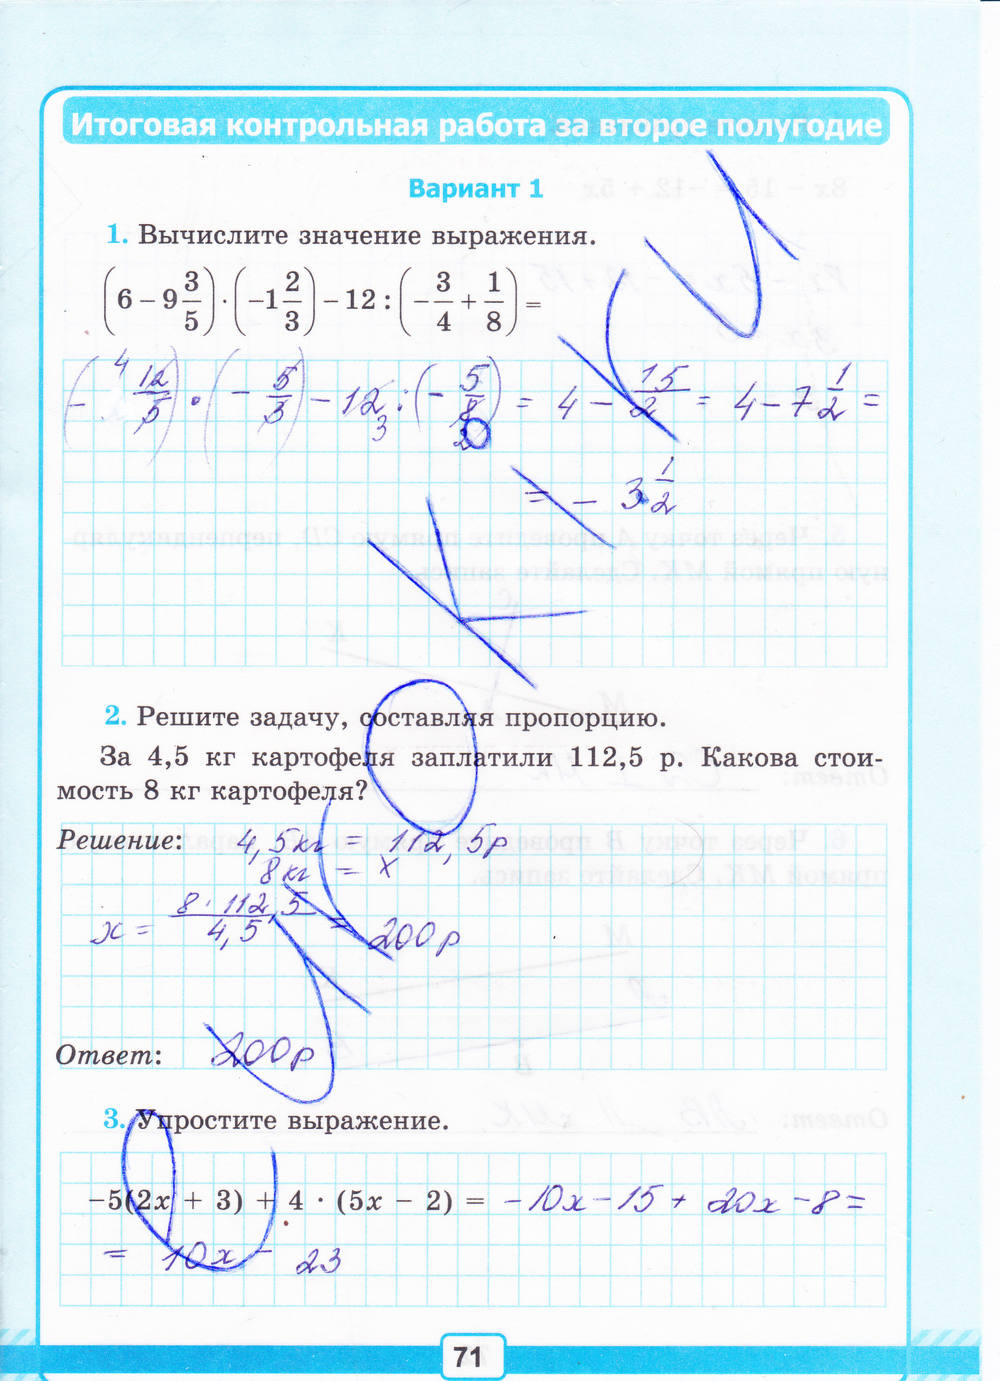 Итоговая контрольная работа за второе полугодие
Вариант 1
1. Вычислите значение выражения.
(6 − 9 3/5) · (−1 2/3) − 12 : (−3/4 + 1/8) =
(− 12/5) · (− 5/3) − 12 : (− 5/8) = 4 − 15/2 = 4 − 7 1/2 =
= − 3 1/2
2. Решите задачу, составляя пропорцию.
За 4,5 кг картофеля заплатили 112,5 р. Какова стои-
мость 8 кг картофеля?
Решение: 4,5кг = 112,5р
8кг = х
х = 8 · 112,5 / 4,5 = 200р
Ответ: 200р
3. Упростите выражение.
−5(2x + 3) + 4 · (5x − 2) = −10x − 15 + 20x − 8 =
= 10x − 23
71